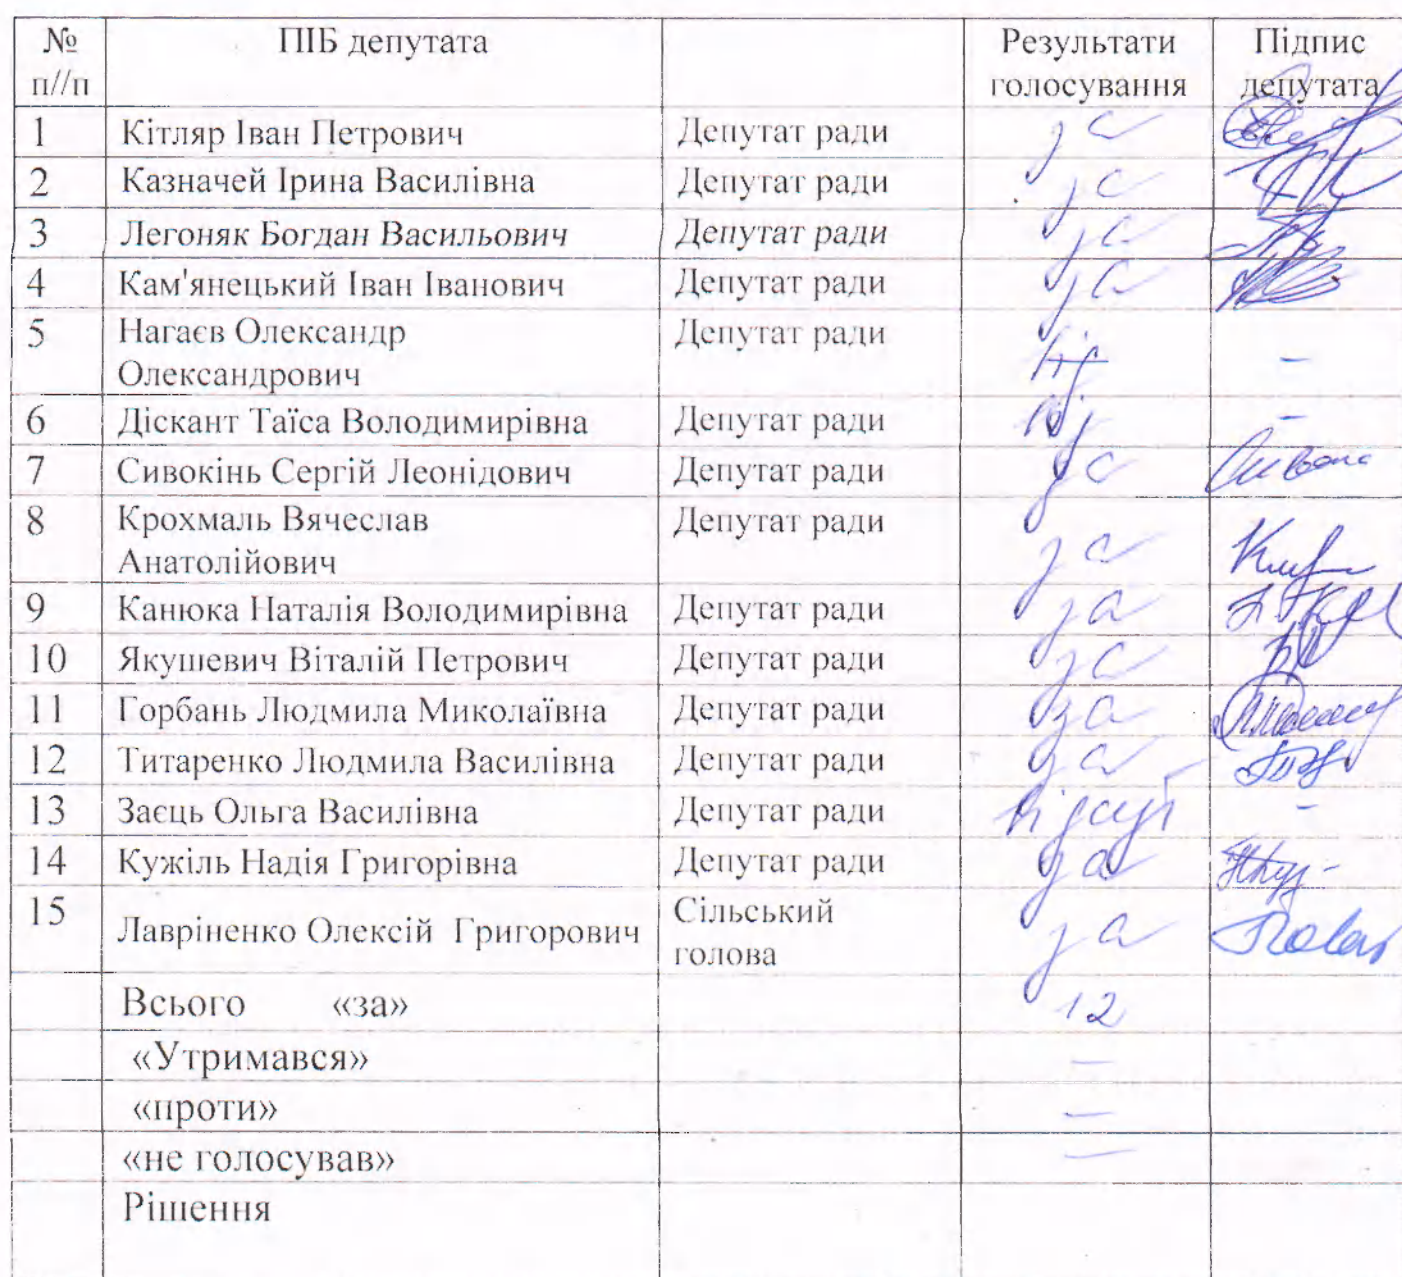 № ПІБ депутата Результати Підпис
п//п голосування депутата
1 Кітляр Іван Петрович Депутат ради за
2 Казначей Ірина Василівна Депутат ради за
3 Легоняк Богдан Васильович Депутат ради за
4 Кам'янецький Іван Іванович Депутат ради за
5 Нагаєв Олександр Депутат ради
Олександрович –
6 Діскант Таїса Володимирівна Депутат ради –
7 Сивокінь Сергій Леонідович Депутат ради за
8 Крохмаль Вячеслав Депутат ради за
Анатолійович
9 Канюка Наталія Володимирівна Депутат ради за
10 Якушевич Віталій Петрович Депутат ради за
11 Горбань Людмила Миколаївна Депутат ради за
12 Титаренко Людмила Василівна Депутат ради за
13 Заєць Ольга Василівна Депутат ради відсут –
14 Кужіль Надія Григорівна Депутат ради за
15 Лавріненко Олексій Григорович Сільський за
голова
Всього «за» 12
«Утримався» –
«проти» –
«не голосував» –
Рішення